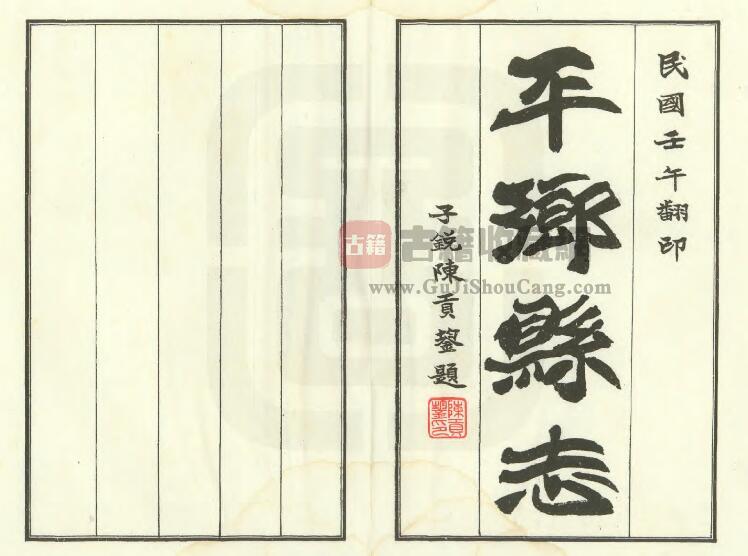 民國壬午翻印
平鄉縣志
子銳陳貢鋆題
古籍
古籍收藏網
www.GuJiShouCang.com